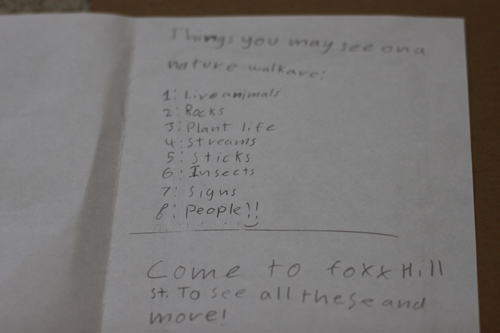 Things you may see on a
nature walk are:
1: Live animals
2: Rocks
3: Plant life
4: Streams
5: Sticks
6: Insects
7: Signs
8: People!!
Come to foxx Hill
st. To see all these and
more!